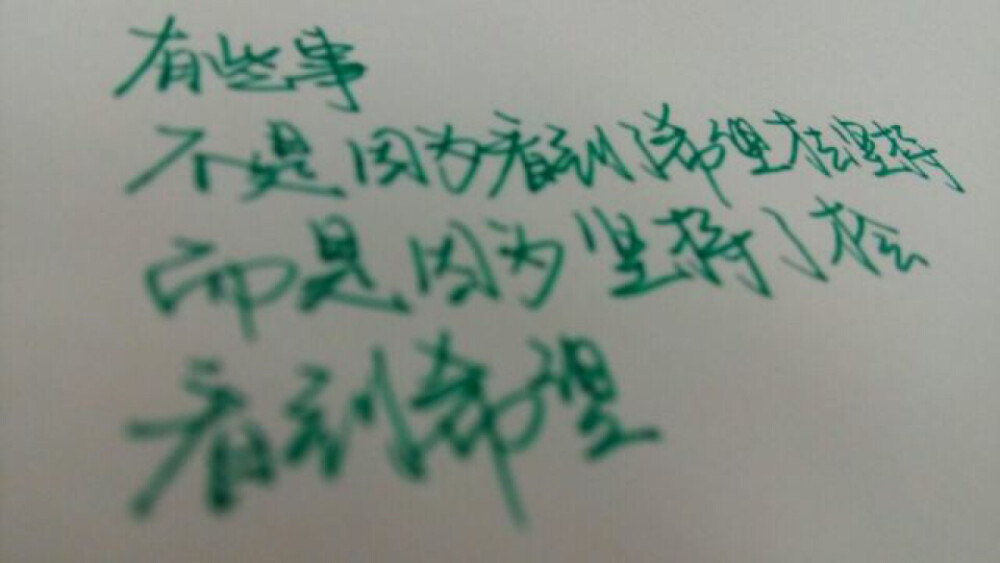 有些事
不是因为看到了希望才会坚持
而是因为坚持了才会
看到希望